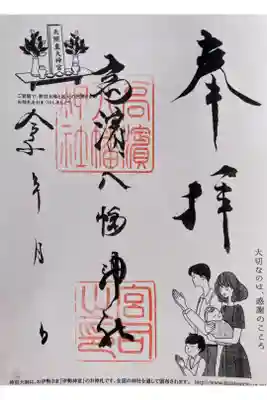 奉拝
高濱八幡神社
高濱
八幡
神社
宮司
之印
令和 年 月 日
天照皇大神宮
大切なのは、感謝のこころ
神宮大麻は、お伊勢さま「伊勢神宮」のお神札です。全国の神社を通して頒布されます。